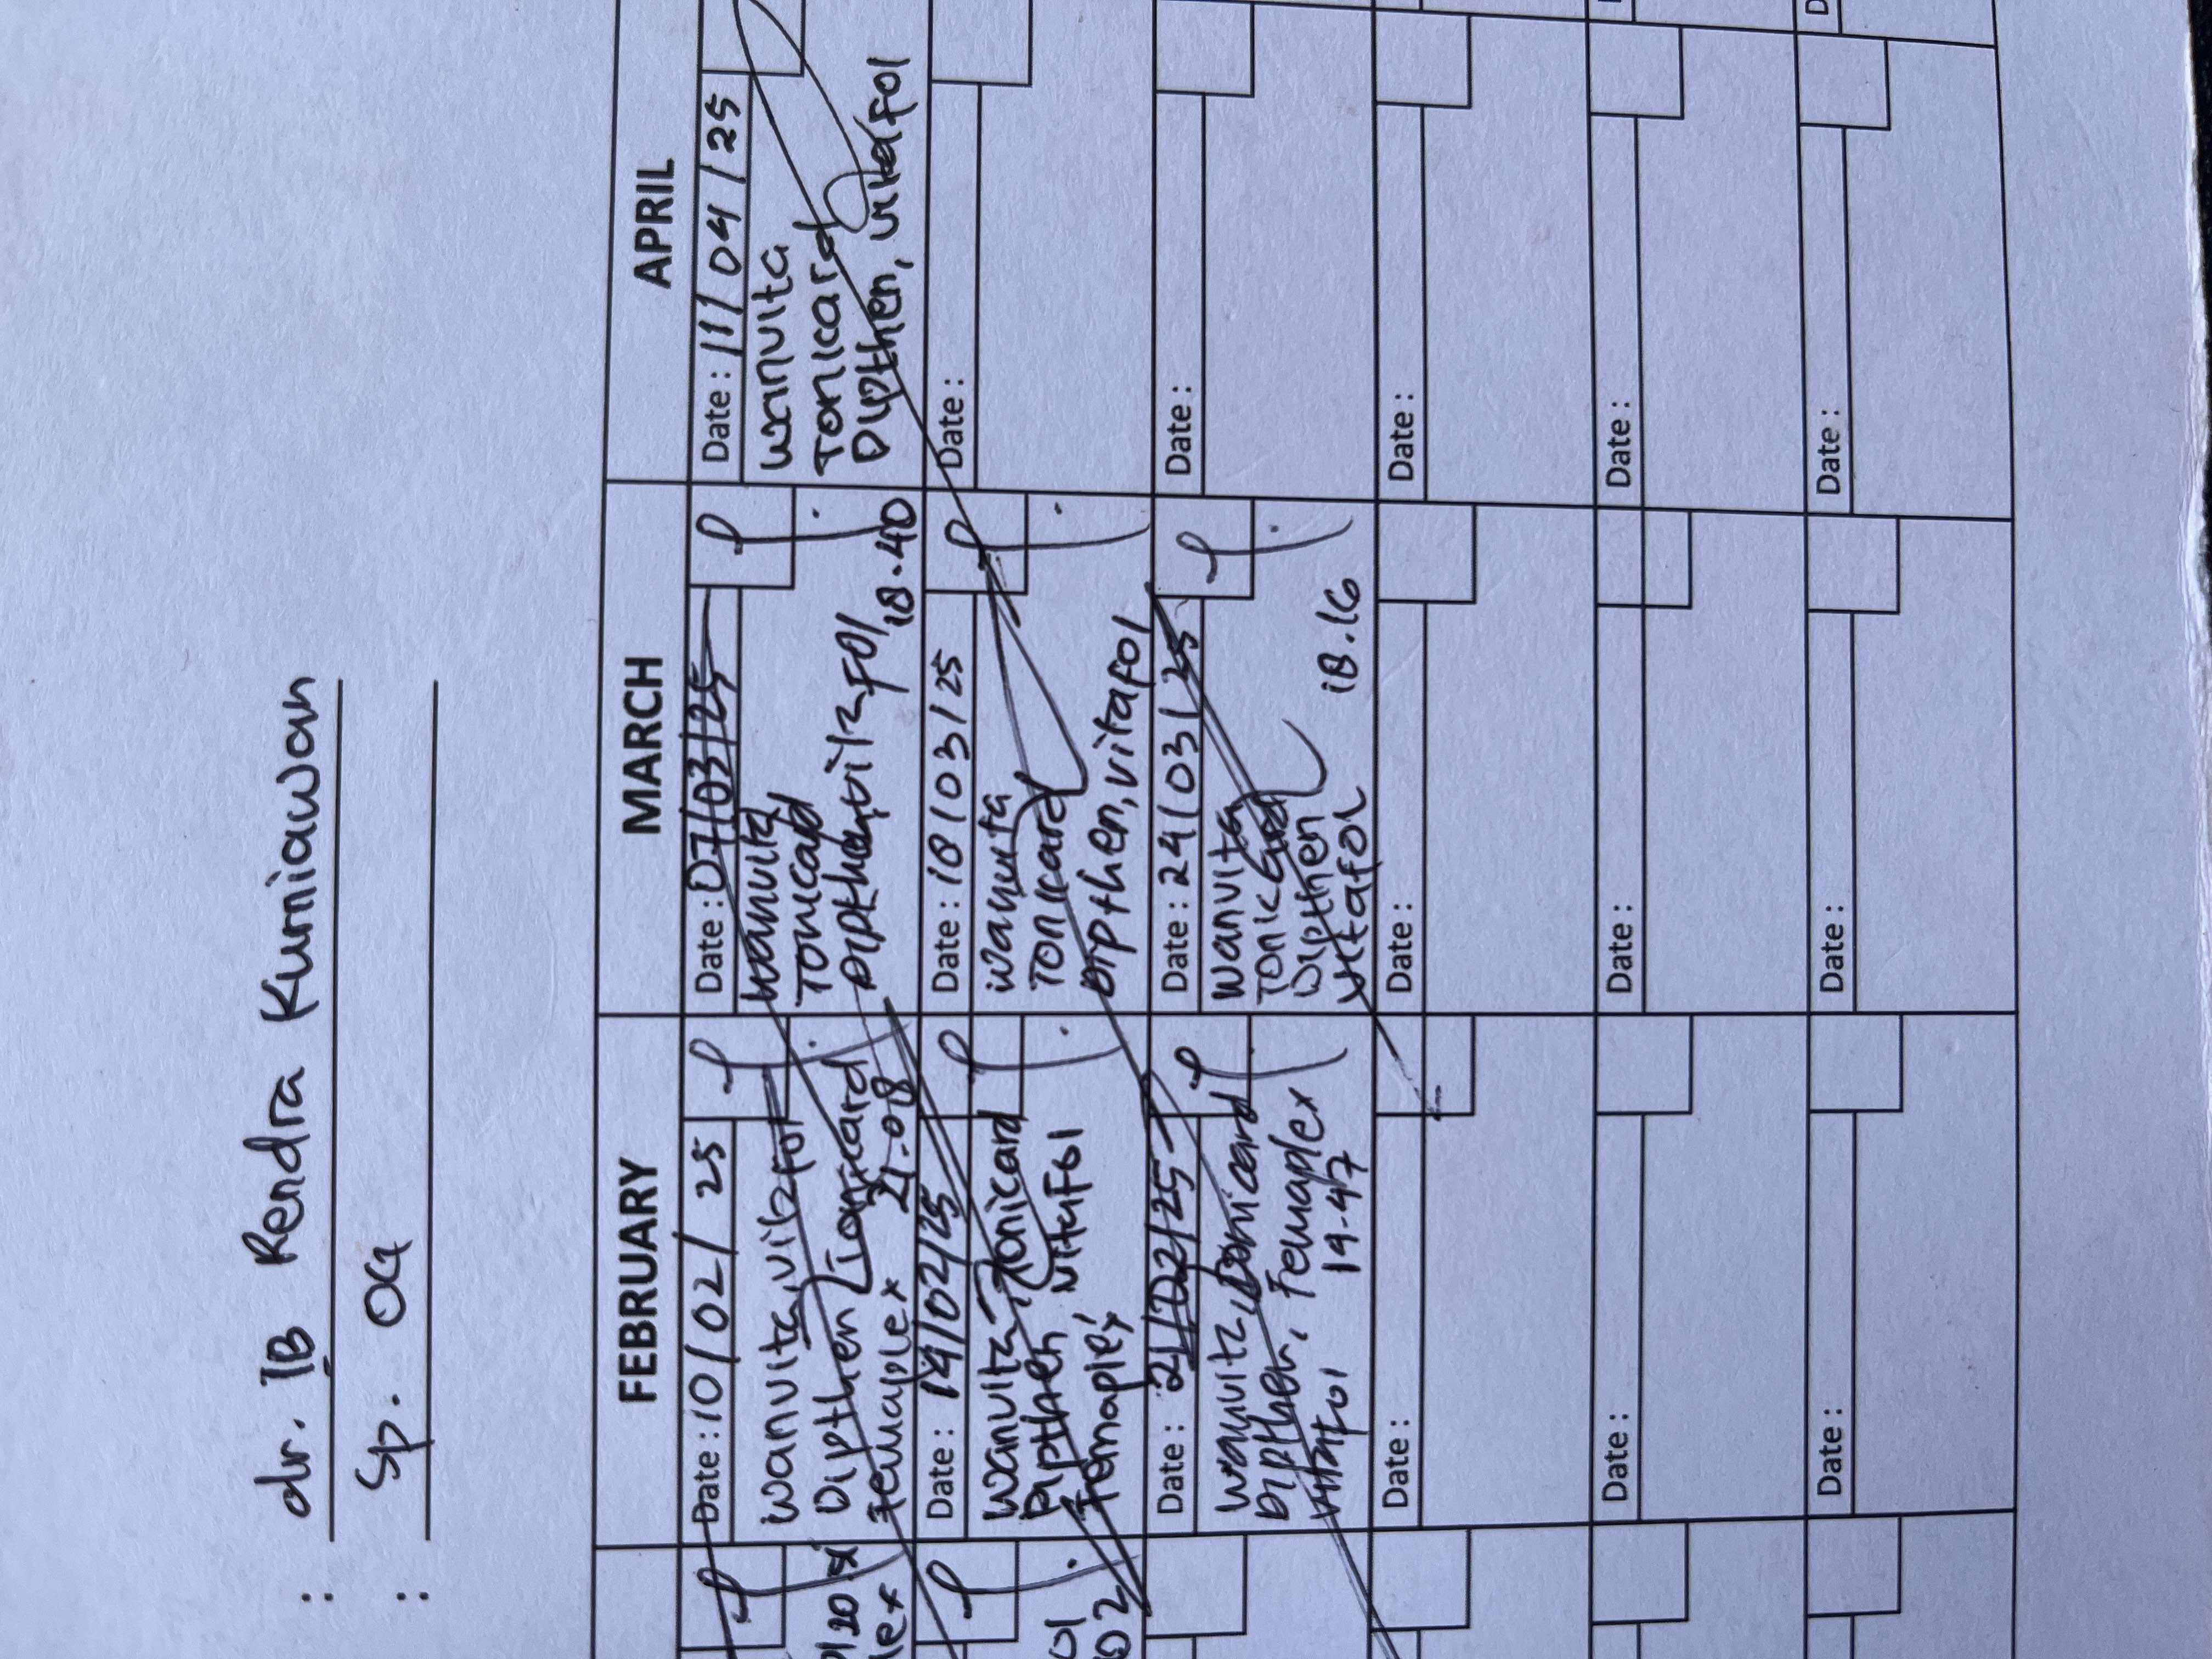 : dr. IB Rendra Kurniawan
: Sp. OG
FEBRUARY
MARCH
APRIL
Date : 10 / 02 / 25
Wanvita, vitafol
Dipthen Tonicard
Femaplex 21.08
Date : 07/03/25
Wanvita
Tonicard
Dipthen, vitafol
18.40
Date : 11 / 04 / 25
Wanvita
Tonicard
Dipthen, vitafol
lex
Date : 14/02/25
Wanvita, Tonicard
Dipthen vitafol
Femaplex
Date : 18 / 03 / 25
Wanvita
Tonicard
Dipthen, vitafol
Date :
ol
02
Date : 21/02/25
Wanvita, Tonicard
Dipthen, Femaplex
vitafol 19.47
Date : 24 / 03 / 25
Wanvita
Tonicard
Dipthen
vitafol
18.16
Date :
Date :
Date :
Date :
Date :
Date :
Date :
Date :
Date :
Date :